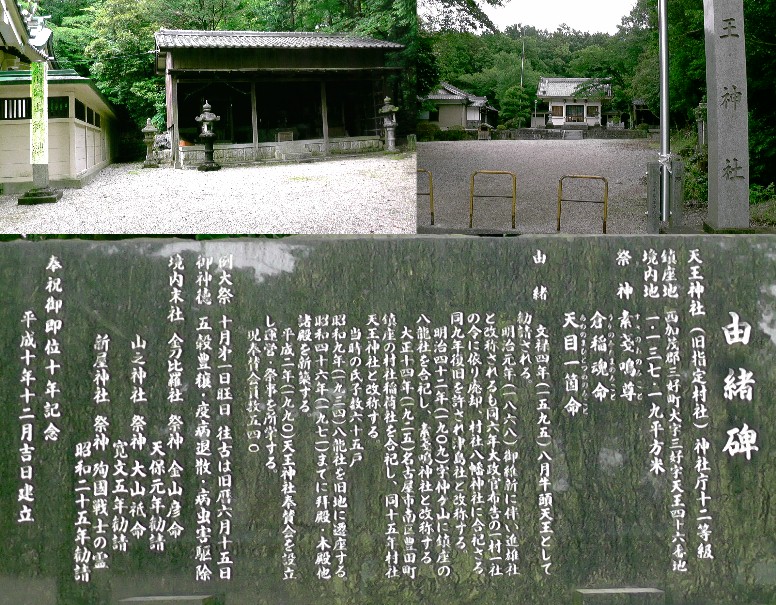 王神社
由緒碑
天王神社（旧指定村社）神社庁十二等級
鎮座地 西加茂郡三好町大字三好字天王四十六番地
境内地 一・一三七・一九平方米
祭神 素戔嗚尊
倉稲魂命
天目一箇命
由緒
文禄四年（一五九五）八月牛頭天王として
勧請される。
明治元年（一八六八）御維新に伴い進雄社
と改称されるも同六年大政官布告の一村一社
の令に依り廃却、村社八幡神社に合祀さる
同九年復旧を許され津島社と改称する。
明治四十二年（一九〇九）字仲ケ山に鎮座の
八龍社を合祀し、素戔嗚神社と改称する
大正十四年（一九二五）名古屋市南区豊田町
鎮座の村社稲荷社を合祀し、同十五年村社
天王神社と改称する。
当時の氏子数六十五戸
昭和九年（一九三四）八龍社を旧地に遷座する
昭和四十六年（一九七一）までに拝殿、本殿他
諸殿を新築する。
平成二年（一九九〇）天王神社奉賛会を設立
し運営・祭事を所掌する。
現奉賛会員数五四〇
例大祭 十月第一日旺日 往古は旧暦六月十五日
御神徳 五穀豊穣・疫病退散・病虫害駆除
境内末社 金刀比羅社 祭神 金山彦命
天保元年勧請
山之神社 祭神 大山祇命
寛文五年勧請
新屋神社 祭神 殉国戦士の霊
昭和二十五年勧請
奉祝御即位十年記念
平成十年十二月吉日建立